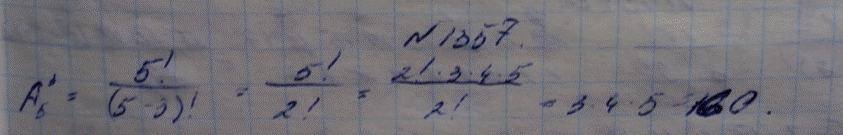 N 1357.
A₅³ = 5! / (5-3)! = 5! / 2! = 2!·3·4·5 / 2! = 3·4·5 = 60.